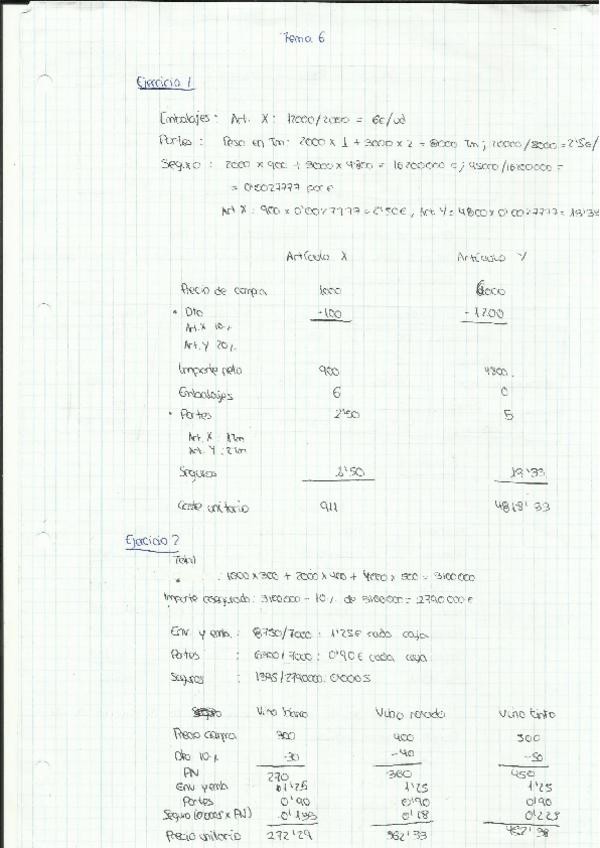 Tema 6
Ejercicio 1
Embalajes: Art. X: 12000/2000 = 6€/ud
Portes: Peso en Tm: 2000 x 1 + 3000 x 2 = 8000 Tm; 20000/8000 = 2'5€/
Seguro: 2000 x 900 + 3000 x 4800 = 16200000 €; 45000/16200000 =
= 0'0027777 por €
Art X: 900 x 0'0027777 = 2'50€, Art. Y: 4800 x 0'0027777 = 13'33
Artículo X Artículo Y
Precio de compra 1000 6000
• Dto -100 -1200
Art. X 10%
Art. Y 20%
Importe neto 900 4800
Embalajes 6 0
• Portes 2'50 5
Art. X: 1 Tm
Art. Y: 2 Tm
Seguros 2'50 13'33
Coste unitario 911 4818'33
Ejercicio 2
Total
: 1000 x 300 + 2000 x 400 + 4000 x 500 = 3100000
Importe asegurado: 3100000 - 10% de 3100000 = 2790000 €
Env y emb.: 8750/7000: 1'25€ cada caja
Portes: 6300/7000: 0'90€ cada caja
Seguros: 1395/2790000: 0'0005
Vino blanco Vino rosado Vino tinto
Precio compra 300 400 500
Dto 10% -30 -40 -50
PN 270 360 450
Env y emb 1'25 1'25 1'25
Portes 0'90 0'90 0'90
Seguro (0'0005 x PN) 0'135 0'18 0'225
Precio unitario 272'29 362'33 452'38